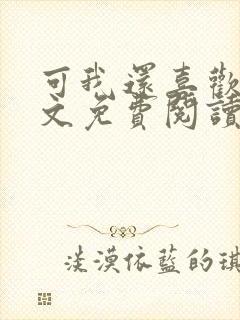 可我還喜歡
文免費閱讀
淡漠依藍的琪